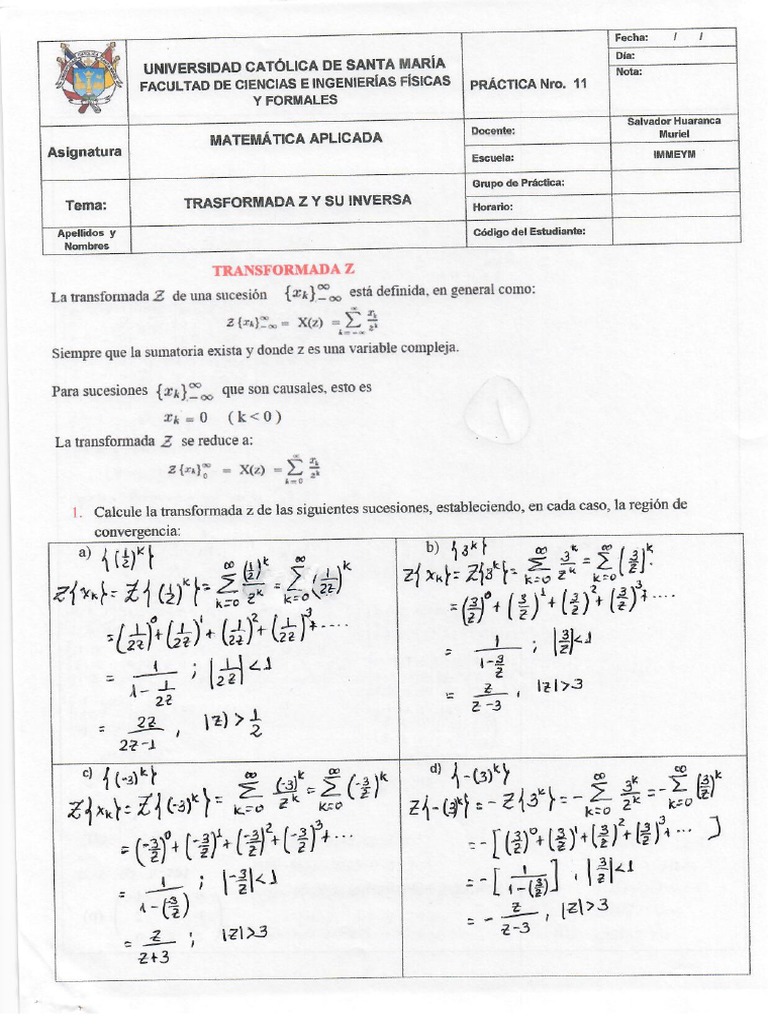 UNIVERSIDAD CATÓLICA DE SANTA MARÍA
FACULTAD DE CIENCIAS E INGENIERÍAS FÍSICAS
Y FORMALES
PRÁCTICA Nro. 11
Fecha: / /
Día:
Nota:
Asignatura
MATEMÁTICA APLICADA
Docente:
Salvador Huaranca
Muriel
Escuela:
IMMEYM
Tema:
TRASFORMADA Z Y SU INVERSA
Grupo de Práctica:
Horario:
Apellidos y
Nombres
Código del Estudiante:
TRANSFORMADA Z
La transformada Z de una sucesión {x_k}_{-∞}^{∞} está definida, en general como:
Z{x_k}_{-∞}^{∞} = X(z) = ∑_{k=-∞}^{∞} x_k/z^k
Siempre que la sumatoria exista y donde z es una variable compleja.
Para sucesiones {x_k}_{-∞}^{∞} que son causales, esto es
x_k = 0 (k < 0)
La transformada Z se reduce a:
Z{x_k}_0^∞ = X(z) = ∑_{k=0}^{∞} x_k/z^k
1. Calcule la transformada z de las siguientes sucesiones, estableciendo, en cada caso, la región de
convergencia:
a) {(1/2)^k}
Z{x_k} = Z{(1/2)^k} = ∑_{k=0}^{∞} (1/2)^k/z^k = ∑_{k=0}^{∞} (1/2z)^k
= (1/2z)^0 + (1/2z)^1 + (1/2z)^2 + (1/2z)^3 + ....
= 1/(1 - 1/2z) ; |1/2z| < 1
= 2z/(2z-1) , |z) > 1/2
b) {3^k}
Z{x_k} = Z{3^k} = ∑_{k=0}^{∞} 3^k/z^k = ∑_{k=0}^{∞} (3/z)^k.
= (3/z)^0 + (3/z)^1 + (3/z)^2 + (3/z)^3 + ....
= 1/(1-3/z) ; |3/z| < 1
= z/(z-3) , |z| > 3
c) {(-3)^k}
Z{x_k} = Z{(-3)^k} = ∑_{k=0}^{∞} (-3)^k/z^k = ∑_{k=0}^{∞} (-3/z)^k
= (-3/z)^0 + (-3/z)^1 + (-3/z)^2 + (-3/z)^3 + ...
= 1/(1-(-3/z)) ; |-3/z| < 1
= z/(z+3) ; |z| > 3
d) {-(3)^k}
Z{-(3)^k} = -Z{3^k} = -∑_{k=0}^{∞} 3^k/z^k = -∑_{k=0}^{∞} (3/z)^k
= -[(3/z)^0 + (3/z)^1 + (3/z)^2 + (3/z)^3 + ... ]
= -[1/(1-(3/z))] , |3/z| < 1
= - z/(z-3) , |z| > 3